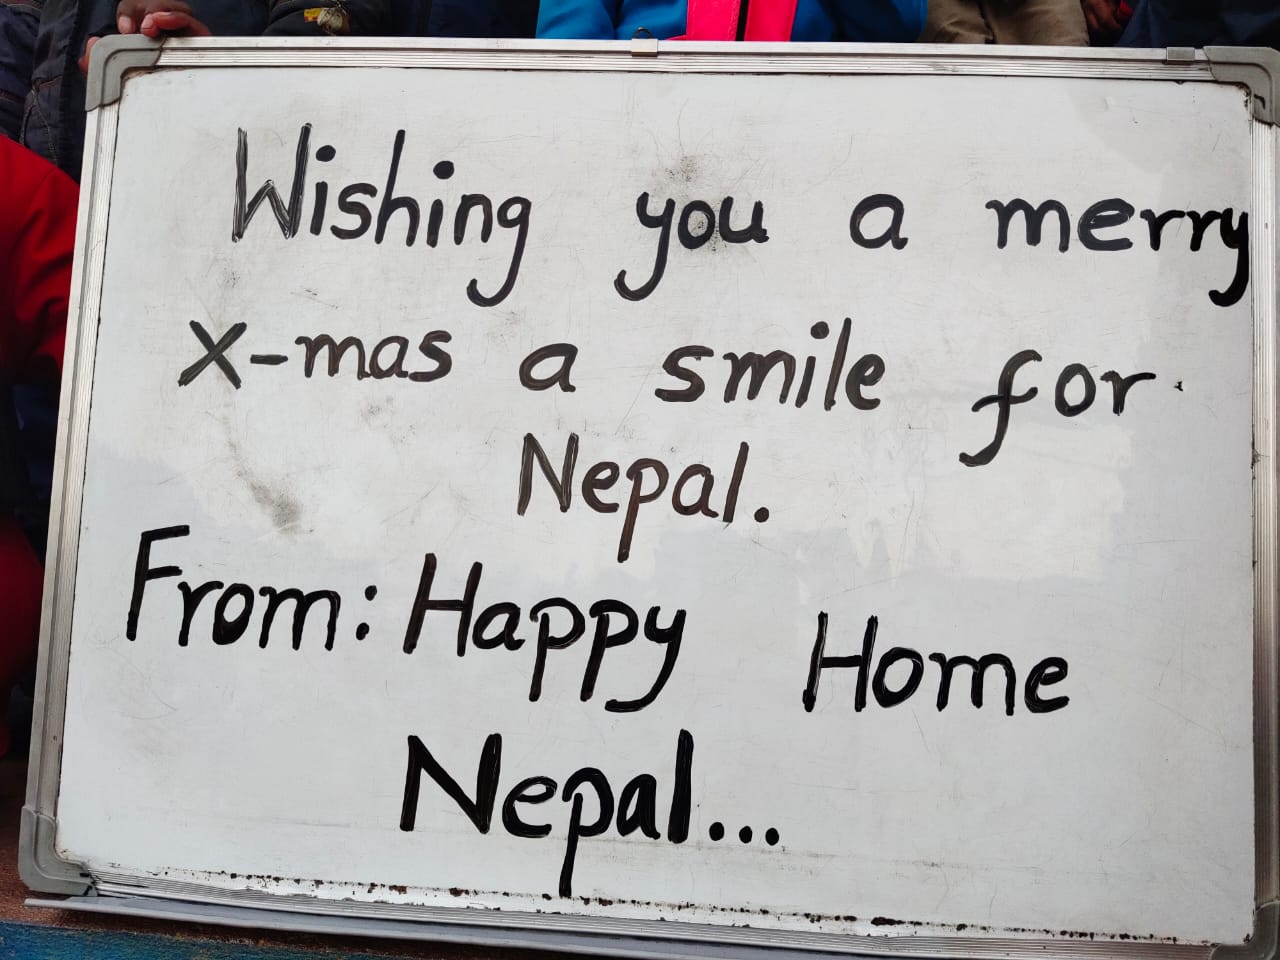 Wishing you a merry
X-mas a smile for
Nepal.
From: Happy Home
Nepal...